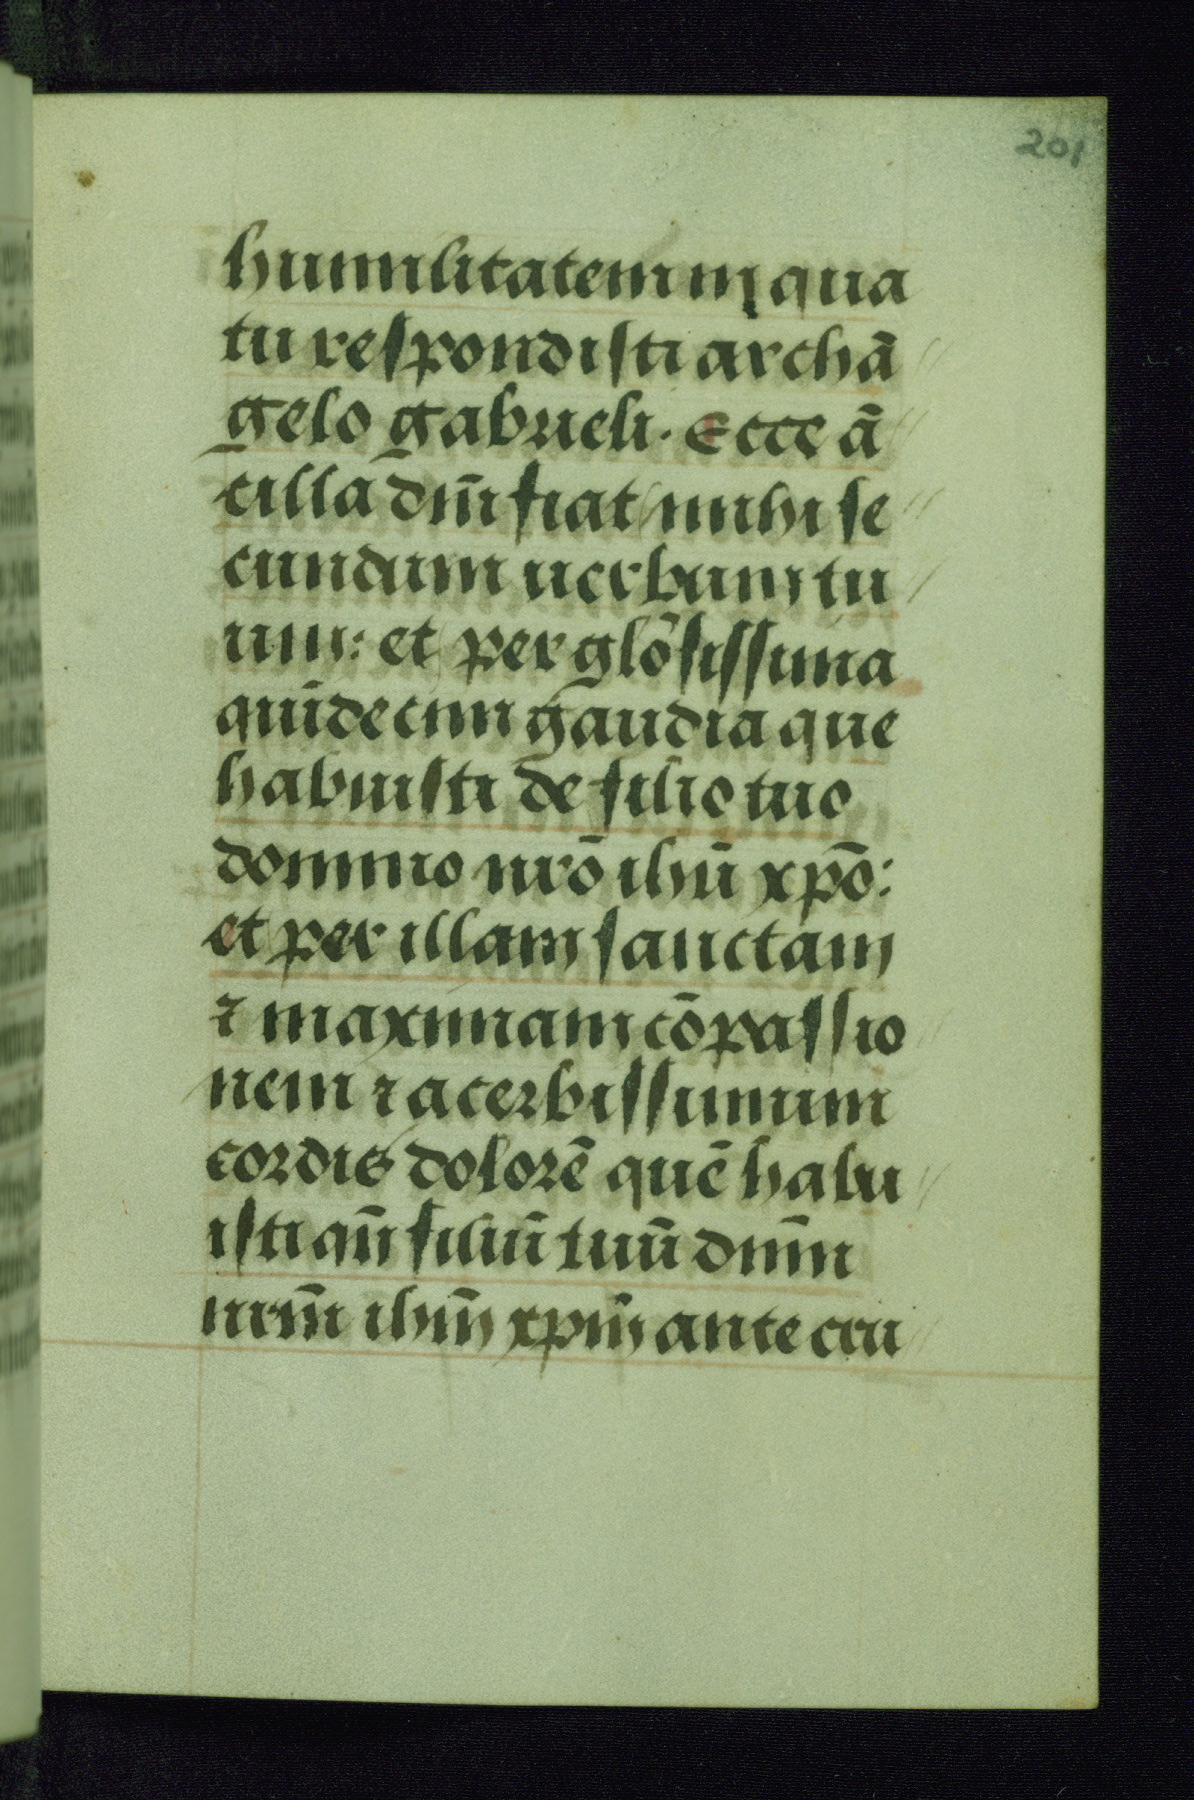 201
humilitatem in qua
tu respondisti archā
gelo gabrieli. Ecce ā
cilla dn̄i fiat michi se
cundum uerbum tu
um: et per glōsissima
quīdecim gaudia que
habuisti de filio tuo
domino nr̄o ihū xp̄o:
et per illam sanctam
⁊ maximam cōpassio
nem ⁊ acerbissimum
cordis dolorē quē habu
isti qn̄ filiū tuū dn̄m
nrm̄ ihm̄ xpm̄ ante cru